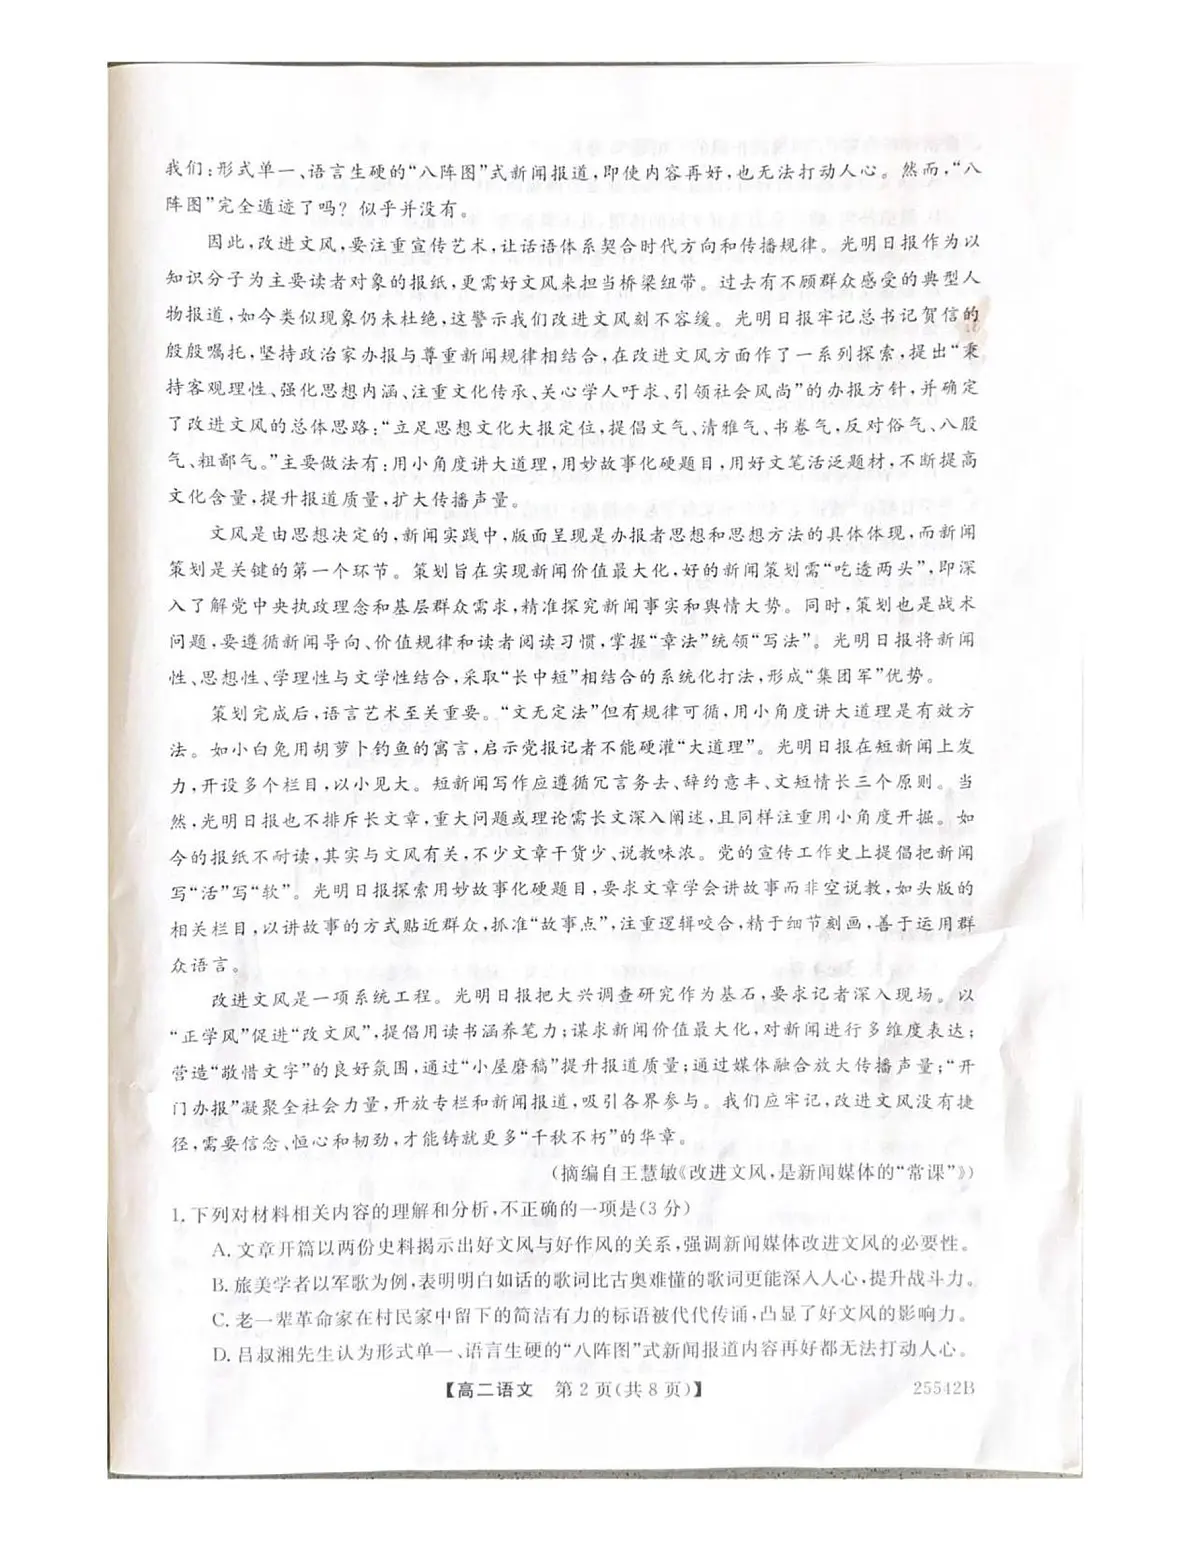 我们:形式单一、语言生硬的“八阵图”式新闻报道,即使内容再好,也无法打动人心。然而,“八
阵图”完全遁迹了吗? 似乎并没有。
因此,改进文风,要注重宣传艺术,让话语体系契合时代方向和传播规律。光明日报作为以
知识分子为主要读者对象的报纸,更需好文风来担当桥梁纽带。过去有不顾群众感受的典型人
物报道,如今类似现象仍未杜绝,这警示我们改进文风刻不容缓。光明日报牢记总书记贺信的
殷殷嘱托,坚持政治家办报与尊重新闻规律相结合,在改进文风方面作了一系列探索,提出“秉
持客观理性、强化思想内涵、注重文化传承、关心学人吁求、引领社会风尚”的办报方针,并确定
了改进文风的总体思路:“立足思想文化大报定位,提倡文气、清雅气、书卷气,反对俗气、八股
气、粗鄙气。”主要做法有:用小角度讲大道理,用妙故事化硬题目,用好文笔活泛题材,不断提高
文化含量,提升报道质量,扩大传播声量。
文风是由思想决定的,新闻实践中,版面呈现是办报者思想和思想方法的具体体现,而新闻
策划是关键的第一个环节。策划旨在实现新闻价值最大化,好的新闻策划需“吃透两头”,即深
入了解党中央执政理念和基层群众需求,精准探究新闻事实和舆情大势。同时,策划也是战术
问题,要遵循新闻导向、价值规律和读者阅读习惯,掌握“章法”统领“写法”。光明日报将新闻
性、思想性、学理性与文学性结合,采取“长中短”相结合的系统化打法,形成“集团军”优势。
策划完成后,语言艺术至关重要。“文无定法”但有规律可循,用小角度讲大道理是有效方
法。如小白兔用胡萝卜钓鱼的寓言,启示党报记者不能硬灌“大道理”。光明日报在短新闻上发
力,开设多个栏目,以小见大。短新闻写作应遵循冗言务去、辞约意丰、文短情长三个原则。当
然,光明日报也不排斥长文章,重大问题或理论需长文深入阐述,且同样注重用小角度开掘。如
今的报纸不耐读,其实与文风有关,不少文章干货少、说教味浓。党的宣传工作史上提倡把新闻
写“活”写“软”。光明日报探索用妙故事化硬题目,要求文章学会讲故事而非空说教,如头版的
相关栏目,以讲故事的方式贴近群众,抓准“故事点”,注重逻辑咬合,精于细节刻画,善于运用群
众语言。
改进文风是一项系统工程。光明日报把大兴调查研究作为基石,要求记者深入现场。以
“正学风”促进“改文风”,提倡用读书涵养笔力;谋求新闻价值最大化,对新闻进行多维度表达;
营造“敬惜文字”的良好氛围,通过“小屋磨稿”提升报道质量;通过媒体融合放大传播声量;“开
门办报”凝聚全社会力量,开放专栏和新闻报道,吸引各界参与。我们应牢记,改进文风没有捷
径,需要信念、恒心和韧劲,才能铸就更多“千秋不朽”的华章。
(摘编自王慧敏《改进文风,是新闻媒体的“常课”》)
1. 下列对材料相关内容的理解和分析,不正确的一项是(3 分)
A. 文章开篇以两份史料揭示出好文风与好作风的关系,强调新闻媒体改进文风的必要性。
B. 旅美学者以军歌为例,表明明白如话的歌词比古奥难懂的歌词更能深入人心,提升战斗力。
C. 老一辈革命家在村民家中留下的简洁有力的标语被代代传诵,凸显了好文风的影响力。
D. 吕叔湘先生认为形式单一、语言生硬的“八阵图”式新闻报道内容再好都无法打动人心。
【高二语文　第 2 页(共 8 页)】
25542B